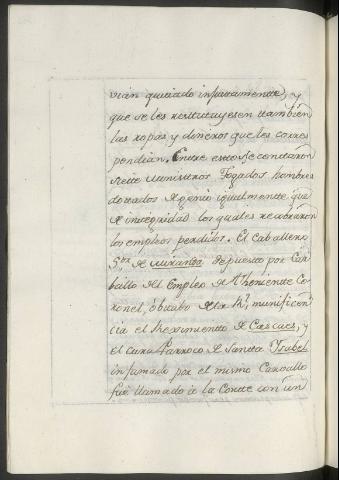 vian quitado injustamentte, y
que se les restituyesen ttambien
las ropas, y dineros que les corres
pendian. Entre estto se conttaron
siette Ministtros Togados hombres
dottados de genio igualmentte que
de integridad los quales recobraron
los empleos perdidos. El caballero
de Miranda depuesto por Car
ballo del Empleo de Thenientte Co
ronel, obtubo de la Rl. munificen
cia el Reximientto de Cascaes, y
el cura Parroco de Santta Isabel
infamado por el mismo Carvallo
fue llamado à la Cortte con un